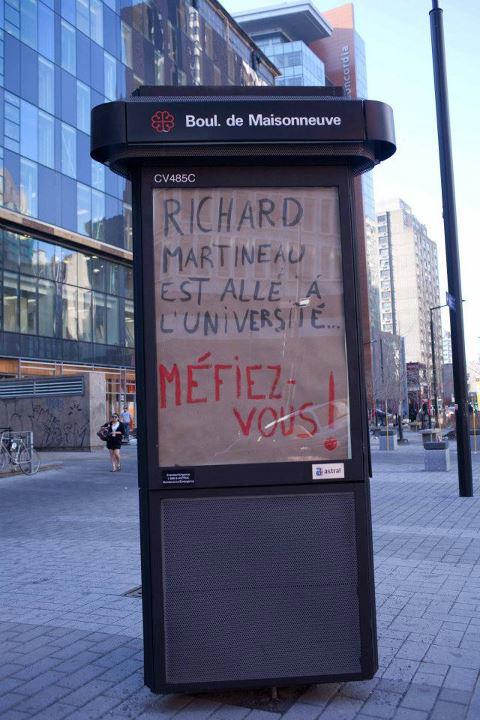 concordia
Boul. de Maisonneuve
CV485C
RICHARD
MARTINEAU
EST ALLÉ À
L'UNIVERSITÉ...
MÉFIEZ-
VOUS!
astral